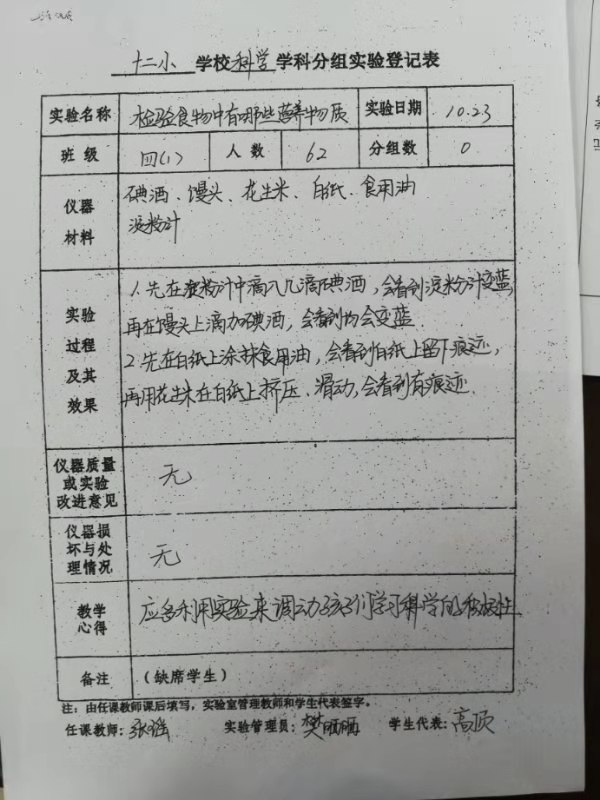 十二小 学校科学学科分组实验登记表
实验名称 检验食物中有哪些营养物质 实验日期 10.23
班 级 四(1) 人 数 62 分组数 0
仪器
材料
碘酒、馒头、花生米、白纸、食用油
淀粉汁
实验
过程
及其
效果
1.先在淀粉汁中滴入几滴碘酒,会看到淀粉汁变蓝,
再在馒头上滴加碘酒,会看到均会变蓝.
2.先在白纸上涂抹食用油,会看到白纸上留下痕迹,
再用花生米在白纸上挤压、滑动,会看到有痕迹.
仪器质量
或实验
改进意见
无
仪器损
坏与处
理情况
无
教学
心得
应多利用实验来调动孩子们学习科学的积极性.
备注 (缺席学生)
注:由任课教师课后填写,实验室管理教师和学生代表签字。
任课教师:张瑶 实验管理员:樊晒晒 学生代表:高顶